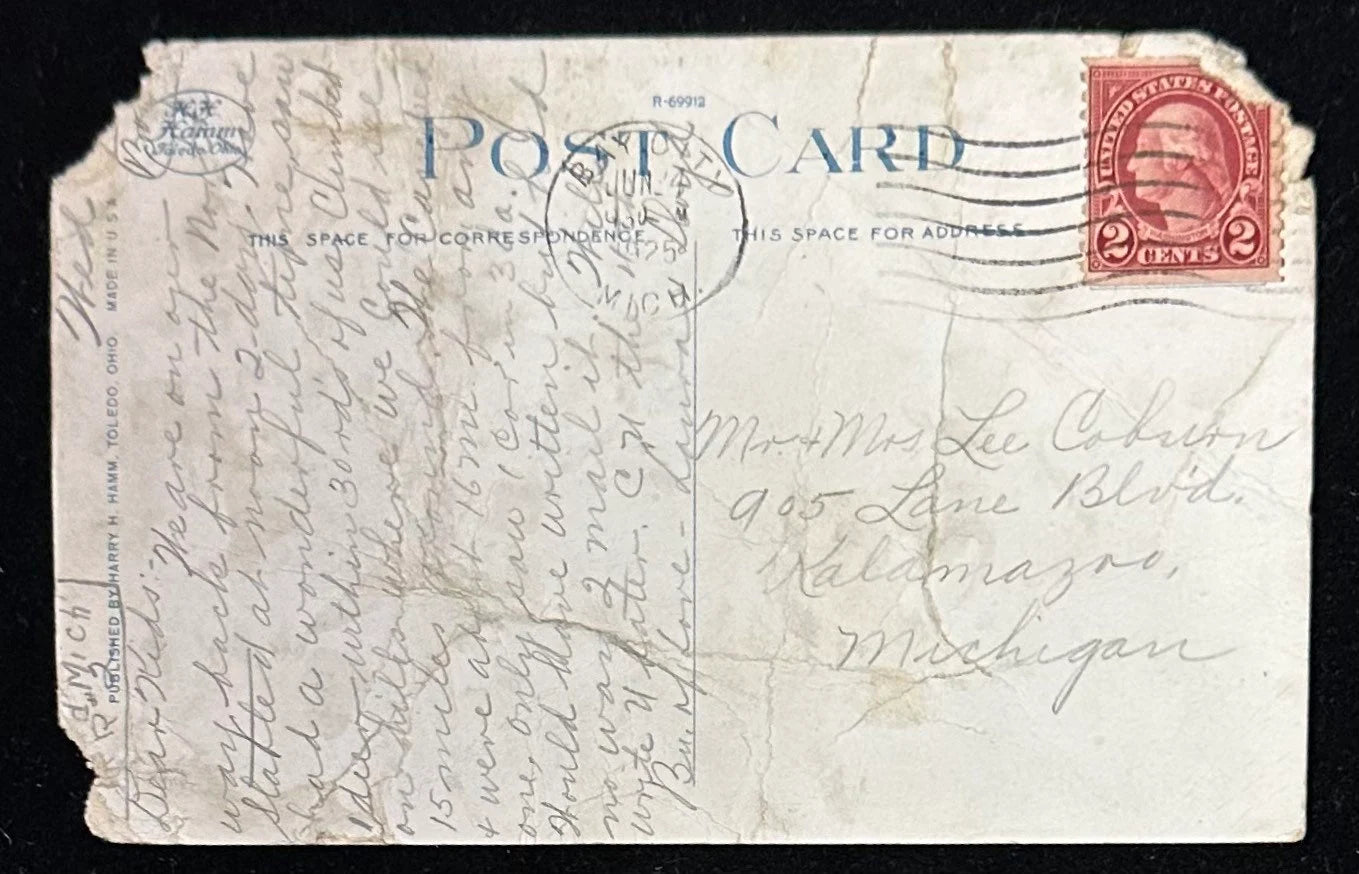 R-69912
POST CARD
THIS SPACE FOR CORRESPONDENCE
THIS SPACE FOR ADDRESS
H.H.
Hamm
Toledo Ohio
PUBLISHED BY HARRY H. HAMM, TOLEDO, OHIO MADE IN U.S.A
BAY CITY
JUN
1925
MICH
UNITED STATES POSTAGE
2 CENTS 2
Mr. + Mrs Lee Coburn
905 Lane Blv'd.
Kalamazoo,
Michigan
Mich
Wed
Dear Kids:- We are on our
way back from the
started at noon 2 days
had a wonderful trip saw
deer within 30 rds of us Climbed
on hills where we Could see
15 miles around. The Car
+ were at 16 mi from any
one. only saw 1 Car in 3 da.
Would have written but had
no way 2 mail it. Will
write U later. C U
Bu. of love - Laura